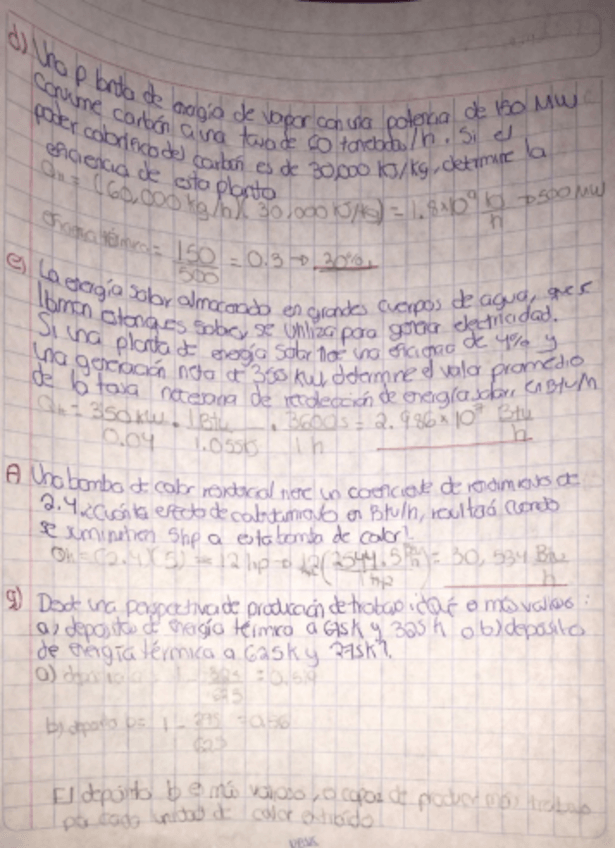 d) Una planta de energía de vapor con una potencia de 150 MW
consume carbón a una tasa de 60 toneladas/h. Si el
poder calorífico del carbón es de 30,000 KJ/kg, determine la
eficiencia de esta planta
Qh = (60,000 kg/h)(30,000 KJ/kg) = 1.8x10⁹ KJ/h → 500 MW
eficiencia térmica = 150/500 = 0.3 → 30%
e) La energía solar almacenada en grandes cuerpos de agua, que se
llaman estanques solares, se utiliza para generar electricidad.
Si una planta de energía solar tiene una eficiencia de 4% y
una generación neta de 350 KW, determine el valor promedio
de la tasa necesaria de recolección de energía solar, en Btu/h
Qh = 350 kW/0.04 · 1 Btu/1.055 · 3600s/1h = 2.986x10⁷ Btu/h
Una bomba de calor residencial tiene un coeficiente de rendimiento de
2.4 ¿Cuál es la efecto de calentamiento en Btu/h, cuando
se suministran 5hp a esta bomba de calor?
Qh = (2.4)(5) = 12 hp → 12(2544.5) = 30,534 Btu/h
g) Desde una perspectiva de producción de trabajo ¿qué es más valioso:
a) depósito de energía térmica a 675K y 325K o b) depósito
de energía térmica a 625K y 275K?
a)
b) depósito = 1 - 275/625 = 0.56
El depósito b es más valioso, es capaz de producir más trabajo
por cada unidad de calor